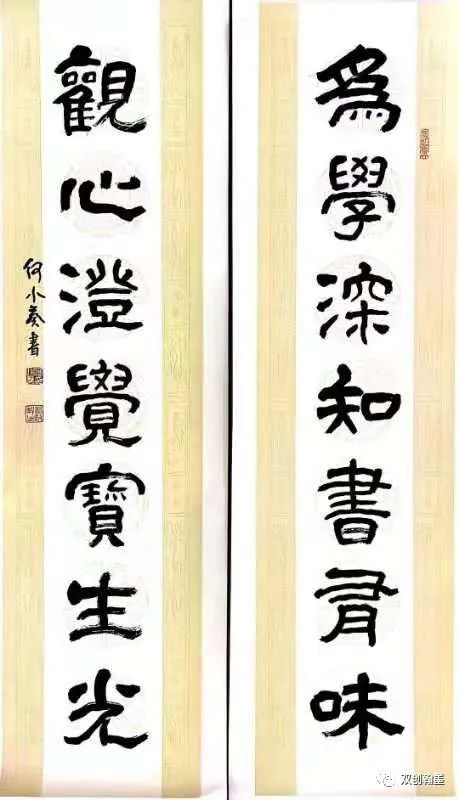 為學深知書有味
觀心澄覺寶生光
何小葵書
双创翰圭